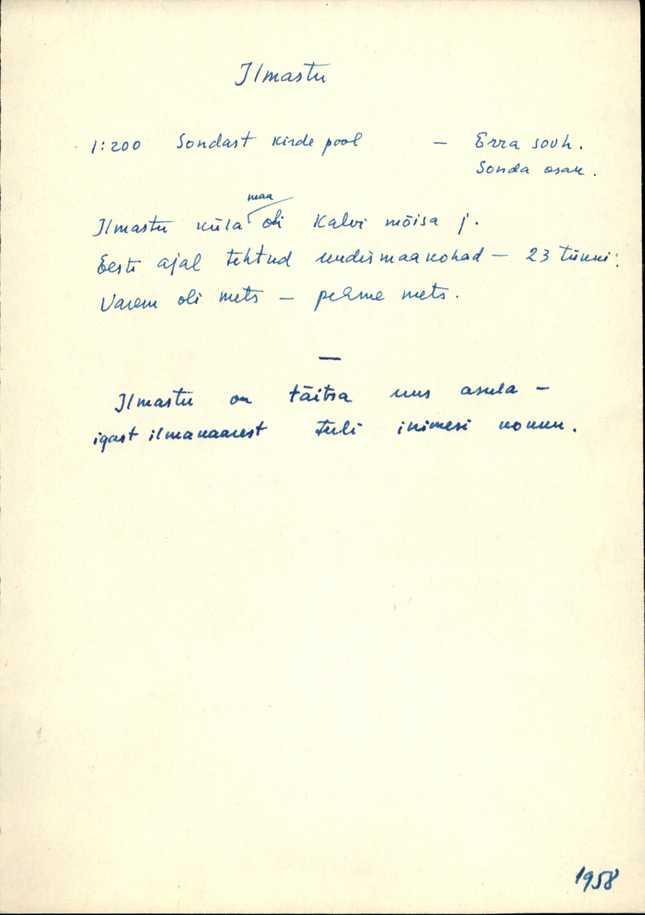 Ilmastu
1:200 Sondast kirde pool – Erra sovh.
Sonda osak.
maa
Ilmastu küla oli Kalvi mõisa j.
Eesti ajal tehtud uudismaakohad – 23 tünni.
Varem oli mets – pehme mets.
—
Ilmastu on täitsa uus asula –
igast ilmakaarest tuli inimesi kokku.
1958